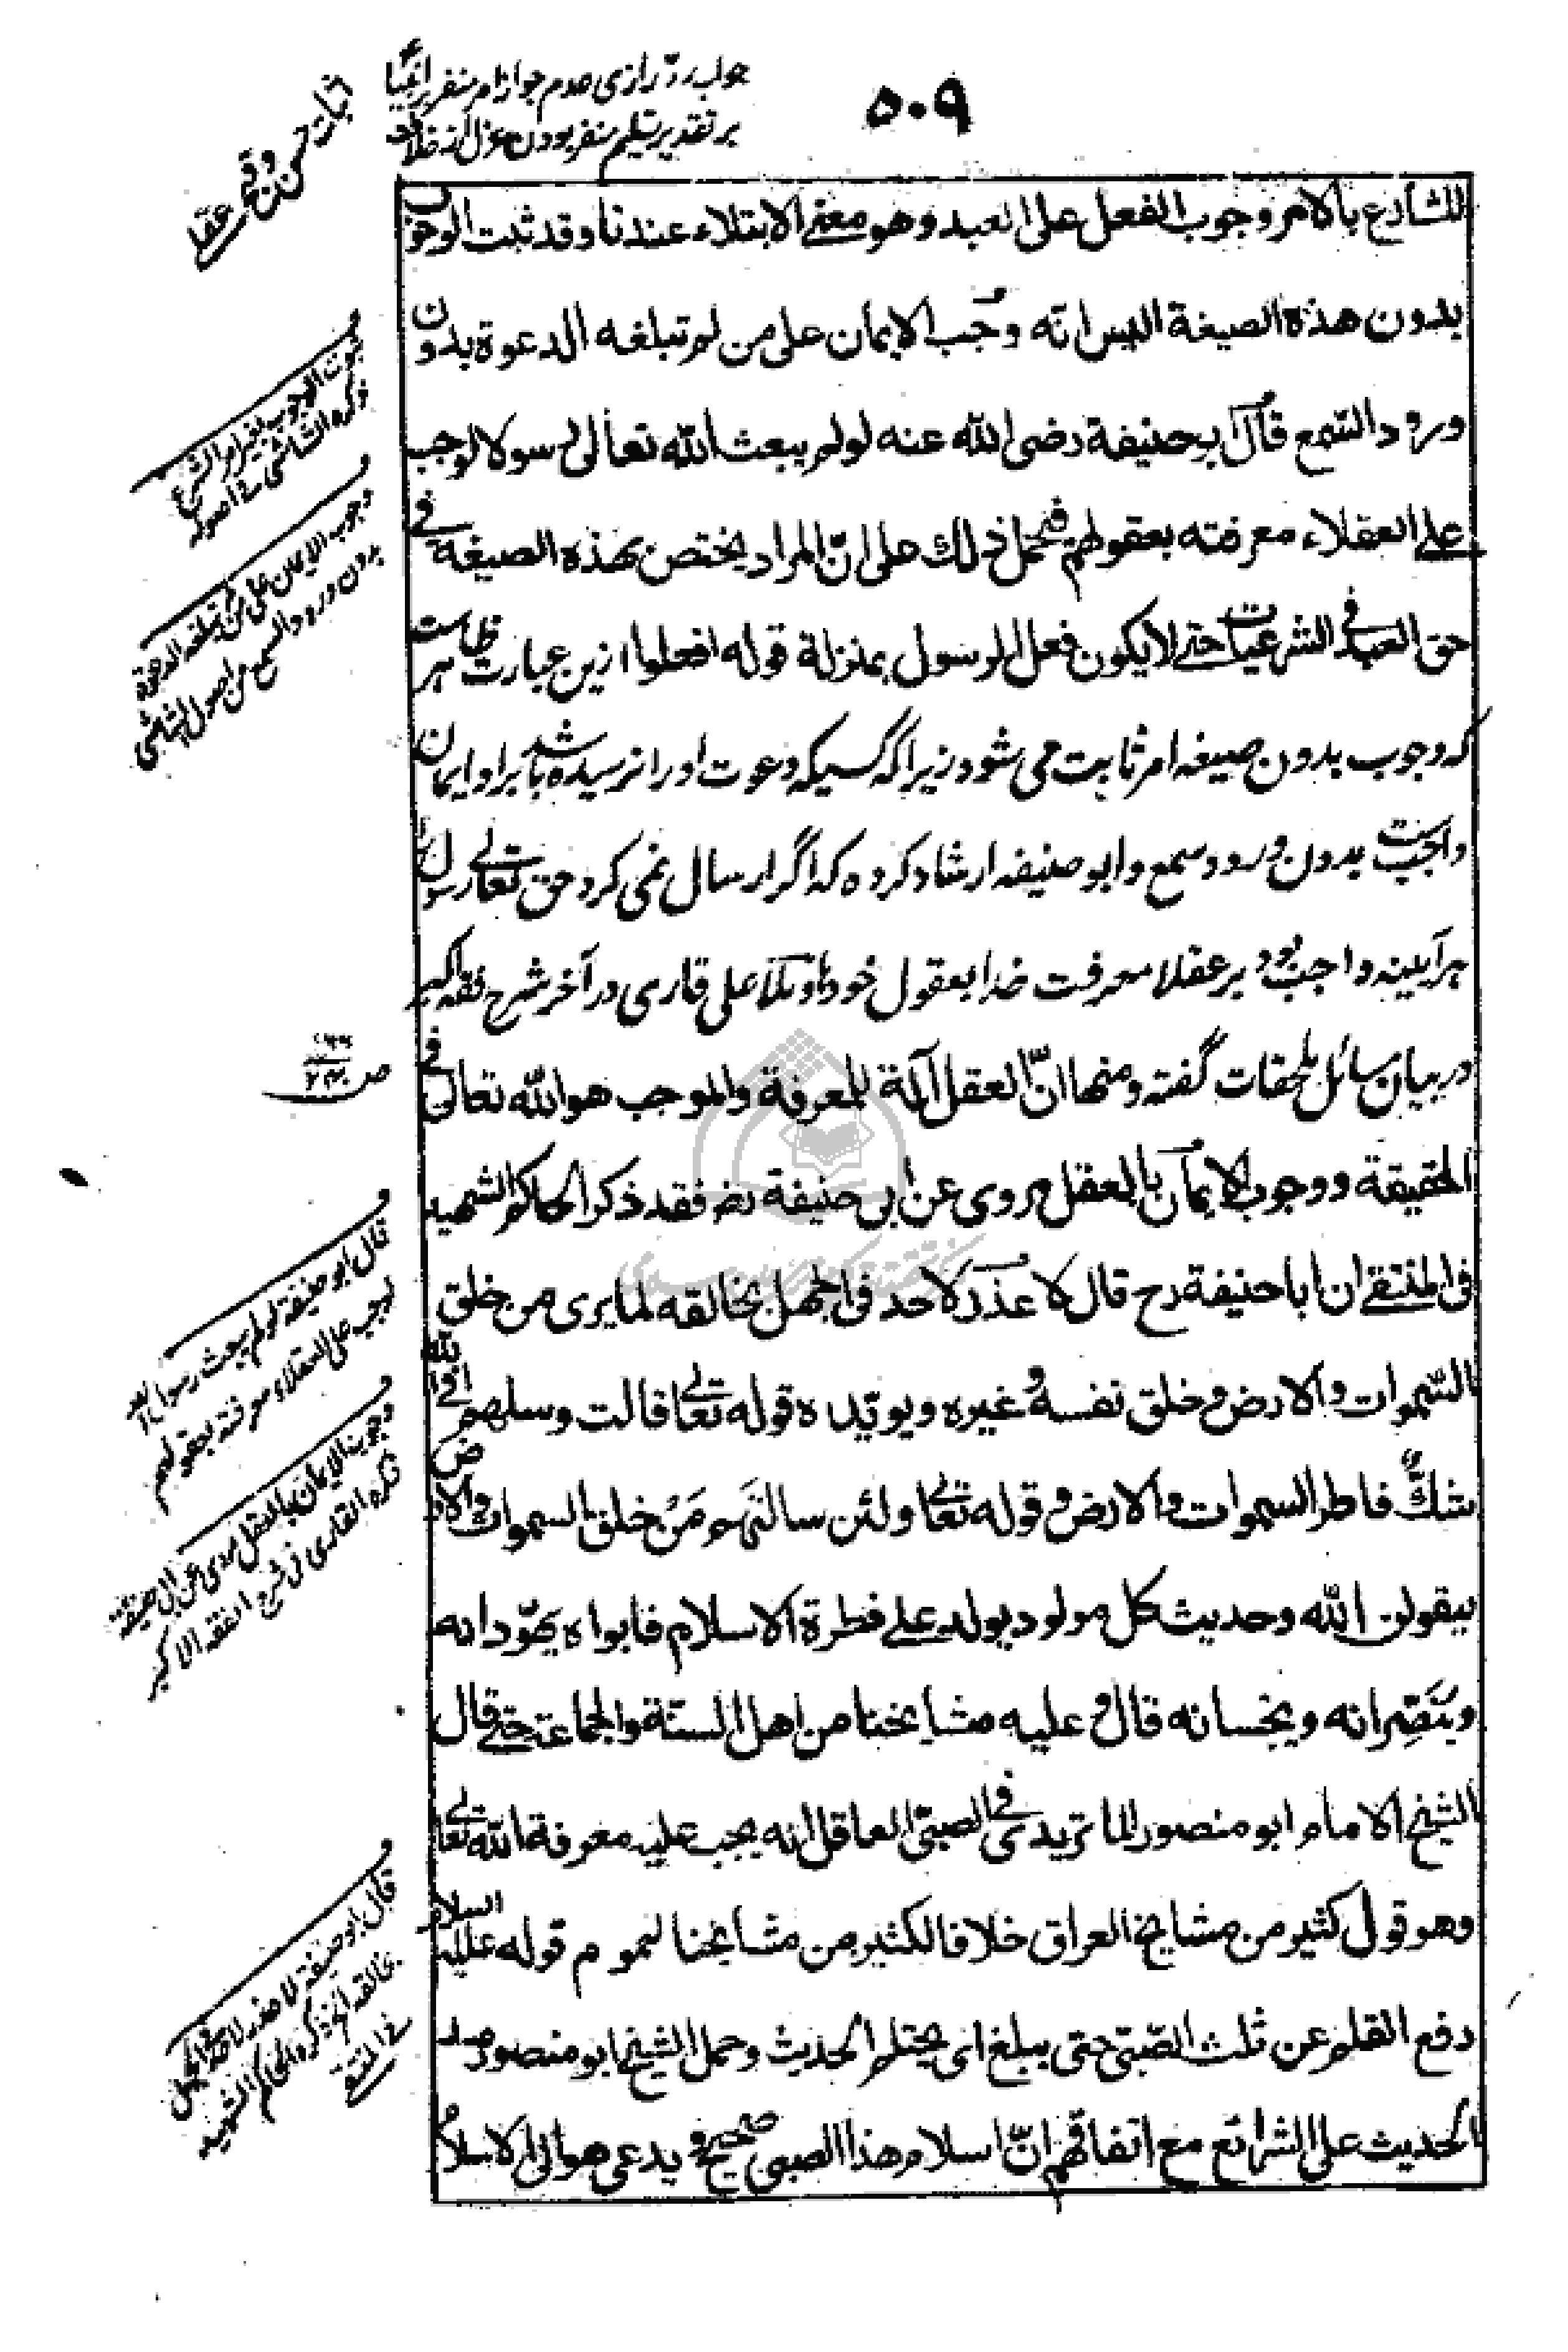 ۵۰۹
جواب رد رازی عدم جواز امر منفر بر انبیا
بر تقدیر تسلیم منفر بودن عزل از خلافت
اثبات حسن و قبح عقلی
للشارع بالامر وجوب الفعل على العبد وهو معنى الابتلاء عندنا وقد ثبت الوجوب
بدون هذه الصيغة اليس انه وجب الايمان على من لم تبلغه الدعوة بدون
ورود السمع قال ابو حنيفة رضى الله عنه لو لم يبعث الله تعالى رسولا لوجب
على العقلاء معرفته بعقولهم فيحمل ذلك على انّ المراد يختص بهذه الصيغة فى
حق العبد فى الشرعيات حتى لا يكون فعل الرسول بمنزلة قوله افعلوا ازین عبارت ظاهرست
که وجوب بدون صیغه امر ثابت می شود زیرا که کسیکه دعوت او را نرسیده باشد بر او ایمان
واجبست بدون ورود سمع و ابو حنیفه ارشاد کرده که اگر ارسال نمی کرد حق تعالی رسولی را
هر آیینه واجب بود بر عقلا معرفت خدا بعقول خود و ملا علی قاری در آخر شرح فقه اکبر
در بیان مسائل ملحقات گفته ومنها انّ العقل آلة للمعرفة والموجب هو الله تعالى فى
الحقيقة ووجوب الايمان بالعقل مروى عن ابى حنيفة رض فقد ذكر الحاكم الشهيد
فى المنتقى ان ابا حنيفة رح قال لا عذر لاحد فى الجهل بخالقه لما يرى من خلق
السّموات والارض وخلق نفسه وغيره ويويّده قوله تعالى قالت رسلهم افى الله
شكٌ فاطر السموات والارض وقوله تعالى ولئن سالتَهم مَنْ خلق السموات والارض
ليقولن الله وحديث كل مولود يولد على فطرة الاسلام فابواه يهوّدانه
وينصّرانه ويمجسانه قال وعليه مشايخنا من اهل السنّة والجماعة حتى قال
الشيخ الامام ابو منصور الماتريدى فى الصبىّ العاقل انه يجب عليه معرفة الله تعالى
وهو قول كثير من مشايخ العراق خلافا لكثير من مشايخنا لعموم قوله عليه السلام
رفع القلم عن ثلث الصّبى حتى يبلغ اى يحتلم الحديث وحمل الشيخ ابو منصور
الحديث على الشرائع مع اتفاقهم انّ اسلام هذا الصبى صحيح ويدعى هو الى الاسلام
ثبوت الوجوب بغير امر الشرع
ذكره الشاشى فى اصوله
وجوب الايمان على من لم تبلغه الدعوة
بدون ورود السمع من اصول الشاشى
قال ابو حنيفة لو لم يبعث رسولا
لوجب على العقلاء معرفته بعقولهم
وجوب الايمان بالعقل مروى عن ابى حنيفة
ذكره القارى فى شرح الفقه الاكبر
قال ابو حنيفة لا عذر لاحد فى الجهل
بخالقه الخ ذكره الحاكم الشهيد
فى المنتقى